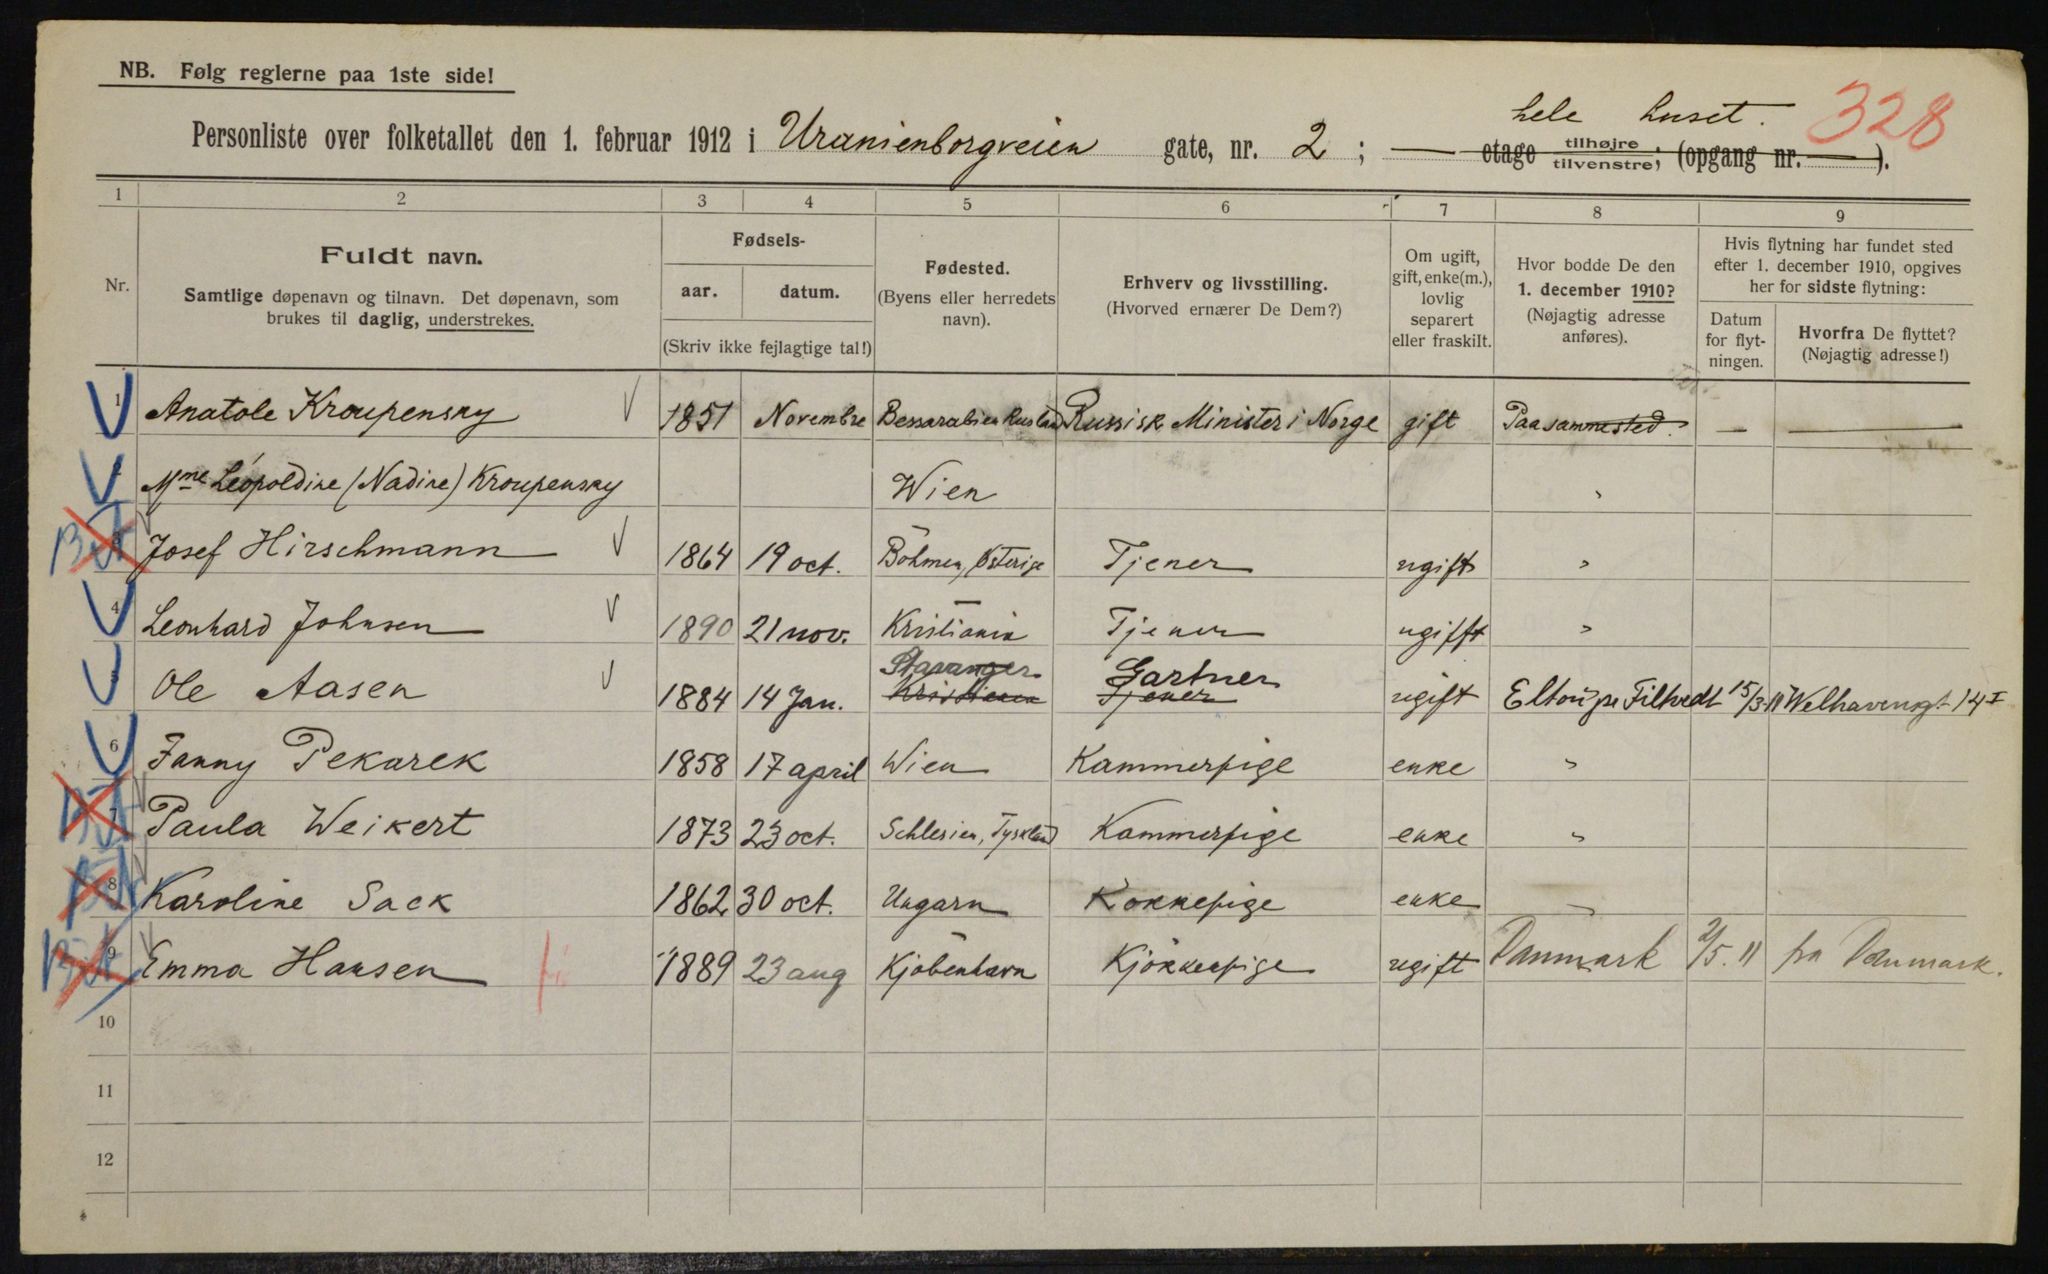 NB. Følg reglerne paa 1ste side!
hele huset. 328
Personliste over folketallet den 1. februar 1912 i Uranienborgveien gate, nr. 2 ; — etage tilhøjre tilvenstre; (opgang nr. — ).
1 2 3 4 5 6 7 8 9
Nr.
Fuldt navn.
Samtlige døpenavn og tilnavn. Det døpenavn, som
brukes til daglig, understrekes.
Fødsels-
aar. datum.
(Skriv ikke fejlagtige tal!)
Fødested.
(Byens eller herredets
navn).
Erhverv og livsstilling.
(Hvorved ernærer De Dem?)
Om ugift,
gift, enke(m.),
lovlig
separert
eller fraskilt.
Hvor bodde De den
1. december 1910?
(Nøjagtig adresse
anføres).
Hvis flytning har fundet sted
efter 1. december 1910, opgives
her for sidste flytning:
Datum
for flyt-
ningen.
Hvorfra De flyttet?
(Nøjagtig adresse!)
1 Anatole Kroupensky 1851 Novembre Bessarabien Rusland Russisk Minister i Norge gift Paa sammested. — —
Mme Léopoldine (Nadine) Kroupensky Wien "
3 Josef Hirschmann 1864 19 oct. Böhmen, Österige Tjener ugift "
4 Leonhard Johnsen 1890 21 nov. Kristiania Tjener ugifft "
Stavanger Gartner
5 Ole Aasen 1884 14 Jan. Kristiania Tjener ugift Eltoñ pr Filtvedt 15/3-11 Welhavensgt 14 I
6 Fanny Pekarek 1858 17 april Wien Kammerpige enke "
7 Paula Weikert 1873 23 oct. Schlesien, Tyskland Kammerpige enke "
8 Karoline Sack 1862 30 oct. Ungarn Kokkepige enke "
9 Emma Hansen 1889 23 aug Kjöbenhavn Kjökkenpige ugift Danmark 2/5. 11 fra Danmark.
10
11
12